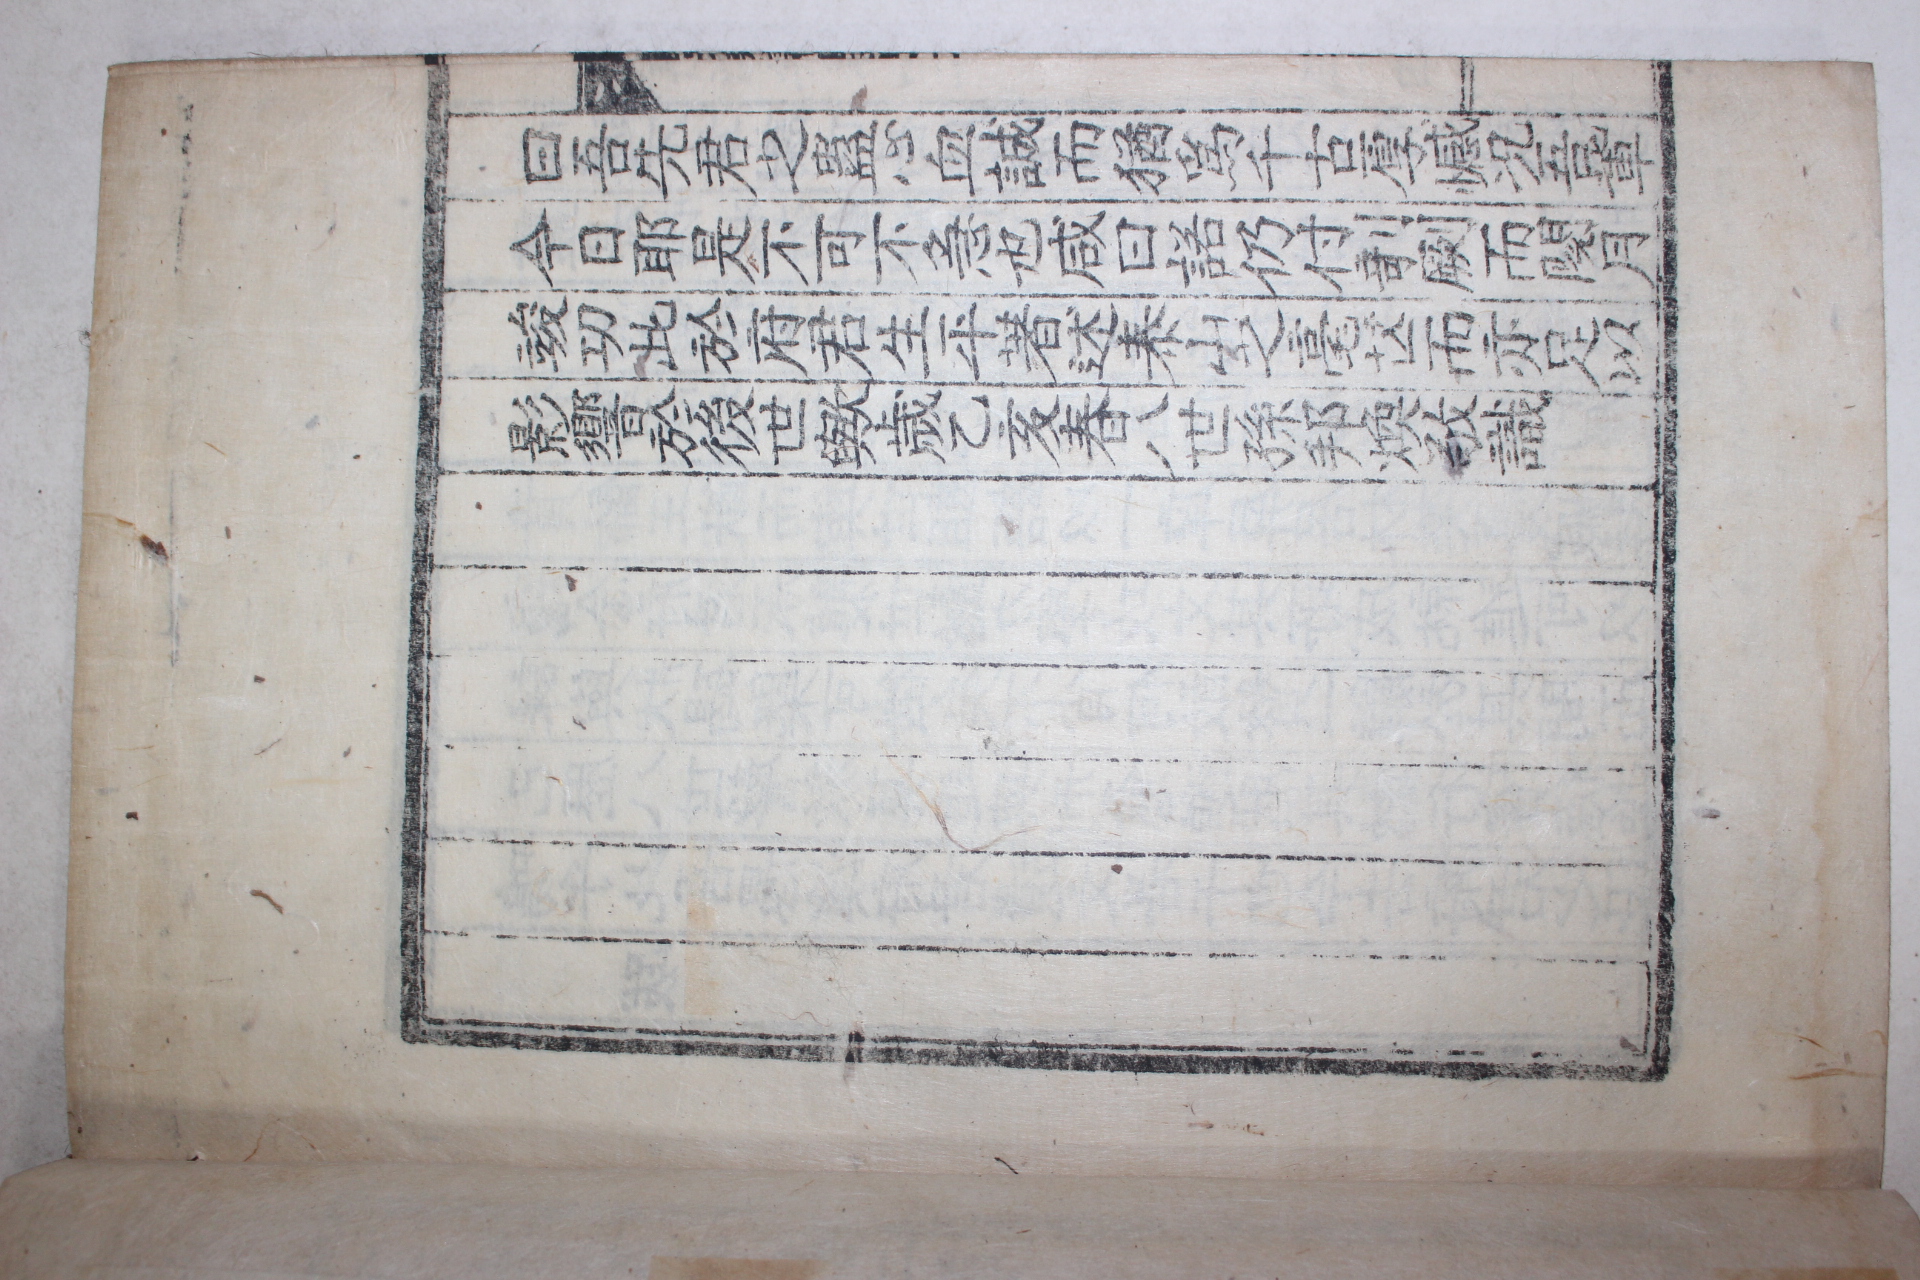 曰吾先君之盡心血誠而猶爲千古辱憾況吾輩
今日耶是不可不急也咸曰諾仍付剞劂而閱月
竣功此於府君生平著述泰山之毫芒而亦足以
影響於後世歟歲乙亥春八世孫邦燮敬識